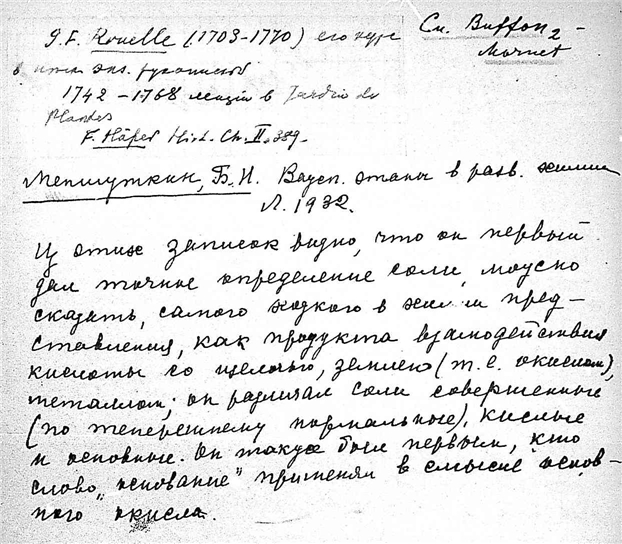 G. F. Rouelle (1703-1770) его курс
См. Buffon 2 -
Mornet
в
экз. рукописей
1742 - 1768 лекции в Jardin de
Plantes
F. Häfer Hist. Ch. II. 389.
Меншуткин, Б. Н. Важн. этапы в разв. химии
Л. 1932.
Из этих записок видно, что он первый
дал точное определение соли, можно
сказать, самого ходкого в химии пред-
ставления, как продукта взаимодействия
кислоты со щелочью, землею (т. е. окислом),
металлом; он различал соли совершенные
(по теперешнему нормальные), кислые
и основные. Он также был первым, кто
слово „основание" применял в смысле основ-
ного окисла.